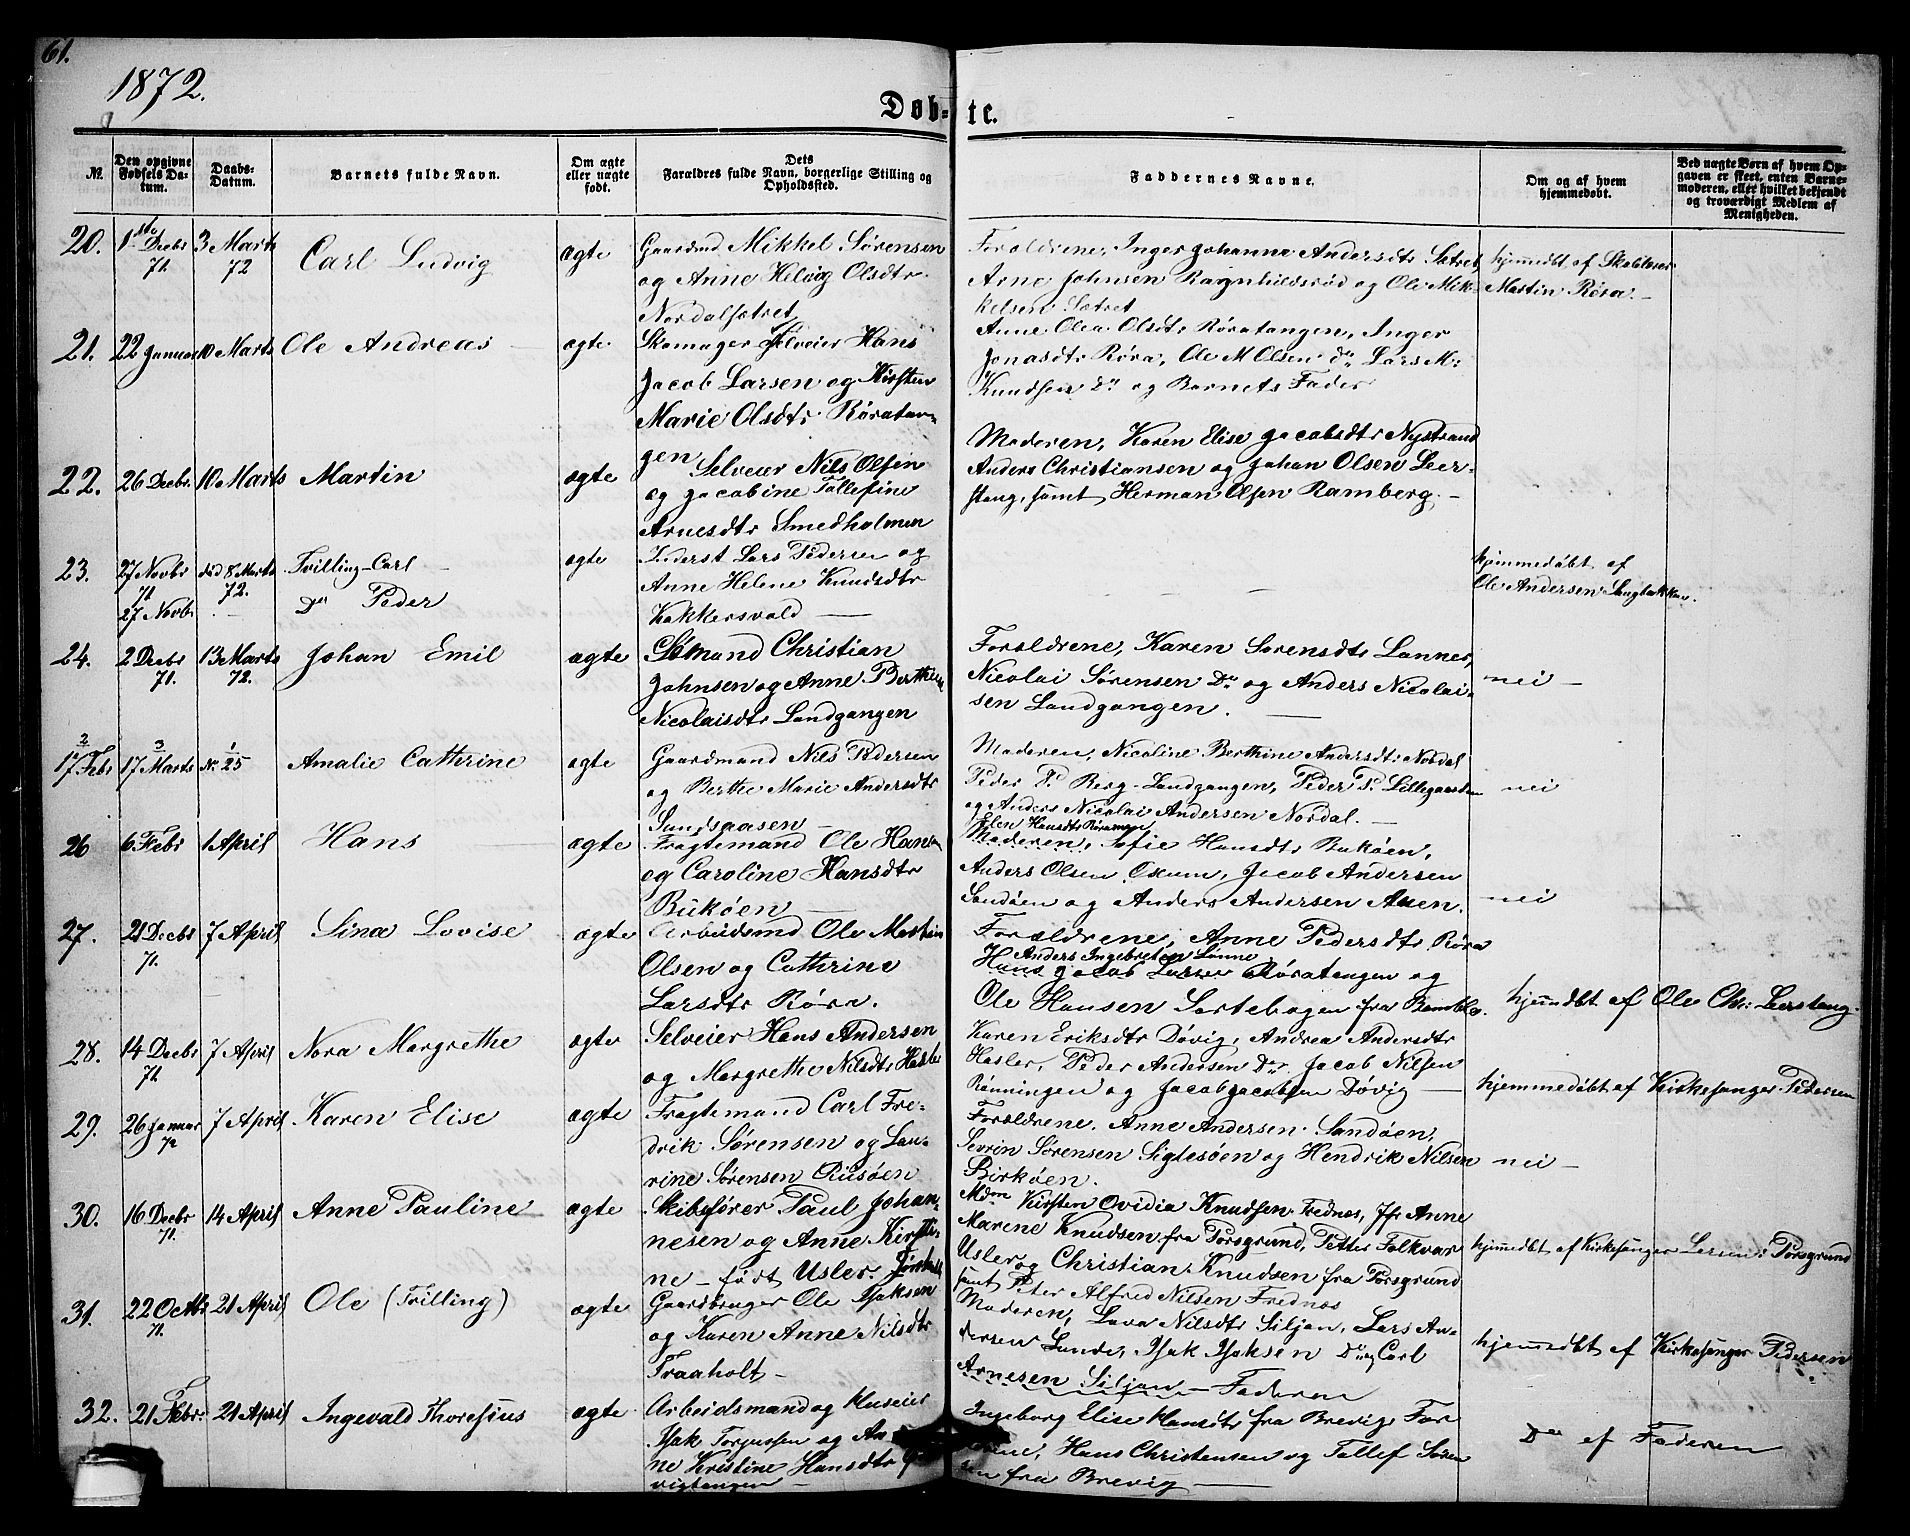 61.
1872.
Døbte.
№.
Den opgivne Fødsels Datum.
Daabs-Datum.
Barnets fulde Navn.
Om ægte eller uægte født.
Dets Forældres fulde Navn, borgerlige Stilling og Opholdssted.
Faddernes Navne.
Om og af hvem hjemmedøbt.
Ved uægte Børn af hvem Opgaven er skeet, enten Barnemoderen, eller hvilket bekjendt og troværdigt Medlem af Menigheden.
20. 1ste Decbr 71. 3 Marts 72 Carl Ludvig ægte
Gaardmd Mikkel Sørensen
og Anne Helvig Olsdtr
Nordalsætret
Forældrene, Inger Johanna Andersdtr Sætret,
Arne Johnsen Ragnhildsrød og Ole Mik-
kelsen Sætret
hjemmedbt af Skolelærer
Martin Røra.-
21. 22 Januar 10 Marts Ole Andreas ægte
Skomager Selveier Hans
Jacob Larsen og Kirsten
Marie Olsdtr Røratan-
gen
Anne Olea Olsdtr Røratangen, Inger
Jonasdtr Røra, Ole M Olsen do, Lars M.
Knudsen Do og Barnets Fader
22. 26 Decbr 10 Marts Martin ægte
Selveier Nils Olsen
og Jacobine Tallefine
Arnesdtr Smedholmen
Moderen, Karen Elise Jacobsdtr Nystrand
Anders Christiansen og Johan Olsen Leer-
stang, samt Herman Olsen Ramberg.-
23. 27 Novbr 71 død 8 Marts 72. Tvilling-Carl ægte
27 Novb. - Do Peder
Inderst Lars Pedersen og
Anne Helene Knudsdtr
Kokkersvold
hjemmedøbt af
Ole Andersen Langbakken.
24. 2 Decbr 71. 13 Marts 72. Johan Emil ægte
Sømand Christian
Johnsen og Anne Berthea
Nicolaisdtr Landgangen
Forældrene, Karen Sørensdtr Lønnes,
Nicolai Sørensen Do og Anders Nicolai-
sen Landgangen.
nei -
17 Febr 17 Marts Nr 25 Amalie Cathrine ægte
Gaardmand Nils Pedersen
og Berthe Marie Andersdtr
Sundsaasen
Moderen, Nicoline Berthine Andersdtr Nordal
Peder P. Berg-Landgangen, Peder P. Lillegaarden
og Anders Nicolai Andersen Nordal.-
nei
26 6 Febr 1 April Hans ægte
Fragtemand Ole Hansen
og Caroline Hansdtr
Bukøen
Elen Hansdtr Røramoen
Moderen, Sofie Hansdtr Bukøen,
Anders Olsen Oxum, Jacob Andersen
Sandøen og Anders Andersen Auen.
nei
27. 21 Decbr 71. 7 April Sina Lovise ægte
Arbeidsmd Ole Martin
Olsen og Cathrine
Larsdtr Røra.
Forældrene, Anne Pedersdtr Røra
Anders Ingebretsen Lønne
Hans Jacob Larsen Røratangen og
Ole Hansen Sortebogen fra Bamble.
hjemmdbt af Ole Chr: Leerstang.
28. 14 Decbr 71. 7 April Nora Margrethe ægte
Selveier Hans Andersen
og Margrethe Nilsdtr Hasler
Karen Eriksdtr Døvig, Andrea Andersdtr
Hasler, Peder Andersen Do Jacob Nilsen
Rønningen og Jacob Jacobsen Døvig
hjemmedøbt af Kirkesanger Pedersen
29. 26 Januar 72 7 April Karen Elise ægte
Fragtemand Carl Fre-
drik Sørensen og Lau-
rine Sørensen Risøen
Forældrene. Anne Andersen Sandøen,
Sevrin Sørensen Sigtesøen og Hendrik Nilsen
Birkøen.
nei -
30. 16 Decbr 71. 14 April Anne Pauline ægte
Skibsfører Paul Johan-
nesen og Anne Kirsti-
ne - født Usler.
Mdm Kirsten Ovidia Knudsen Frednes, Jfr Anne
Marene Knudsen fra Porsgrund, Petter Folkvar
Usler og Christian Knudsen fra Porsgrund
samt Peter Alfred Nilsen Frednes
hjemmedbt af Kirkesanger Larsen i Porsgrund
31. 22 Octbr 71. 21 April Ole (Trilling) ægte
Gaardbruger Ole Isaksen
og Karen Anne Nilsdtr
Traaholt -
Moderen, Lava Nilsdtr Siljan, Lars An-
dersen Lunde, Isak Isaksen Do og Carl
Arnesen Siljan - Faderen
hjemmedøbt af Kirkesanger Pedersen
32. 21 Febr. 21 April Ingevald Thoresius ægte
Arbeidsmand og Huseier
Isak Torjussen og An
ne Kristine Hansdtr
vigtangen -
Ingeborg Elise Hansdtr fra Brevig, For
ældrene, Hans Christensen og Tallef Søren
sen fra Brevig
Do af Faderen